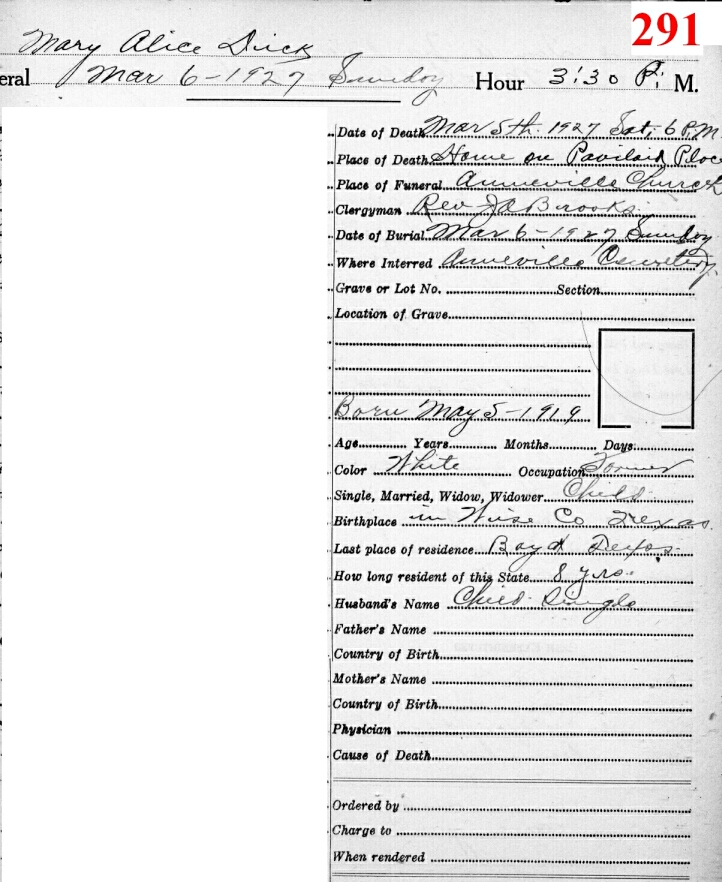 291
Mary Alice Dirck
eral Mar 6-1927 Sunday Hour 3:30 P. M.
Date of Death Mar 5th. 1927 Sat, 6 P.M.
Place of Death Home on Place
Place of Funeral Anneville Church
Clergyman Rev J A Brooks
Date of Burial Mar 6-1927 Sunday
Where Interred Anneville Cemetery.
Grave or Lot No. Section
Location of Grave
Born May 5-1919
Age Years Months Days
Color White Occupation Farmer
Single, Married, Widow, Widower Child
Birthplace in Wise Co Texas
Last place of residence Boyd Texas
How long resident of this State 8 yrs.
Husband's Name Child Single
Father's Name
Country of Birth
Mother's Name
Country of Birth
Physician
Cause of Death
Ordered by
Charge to
When rendered